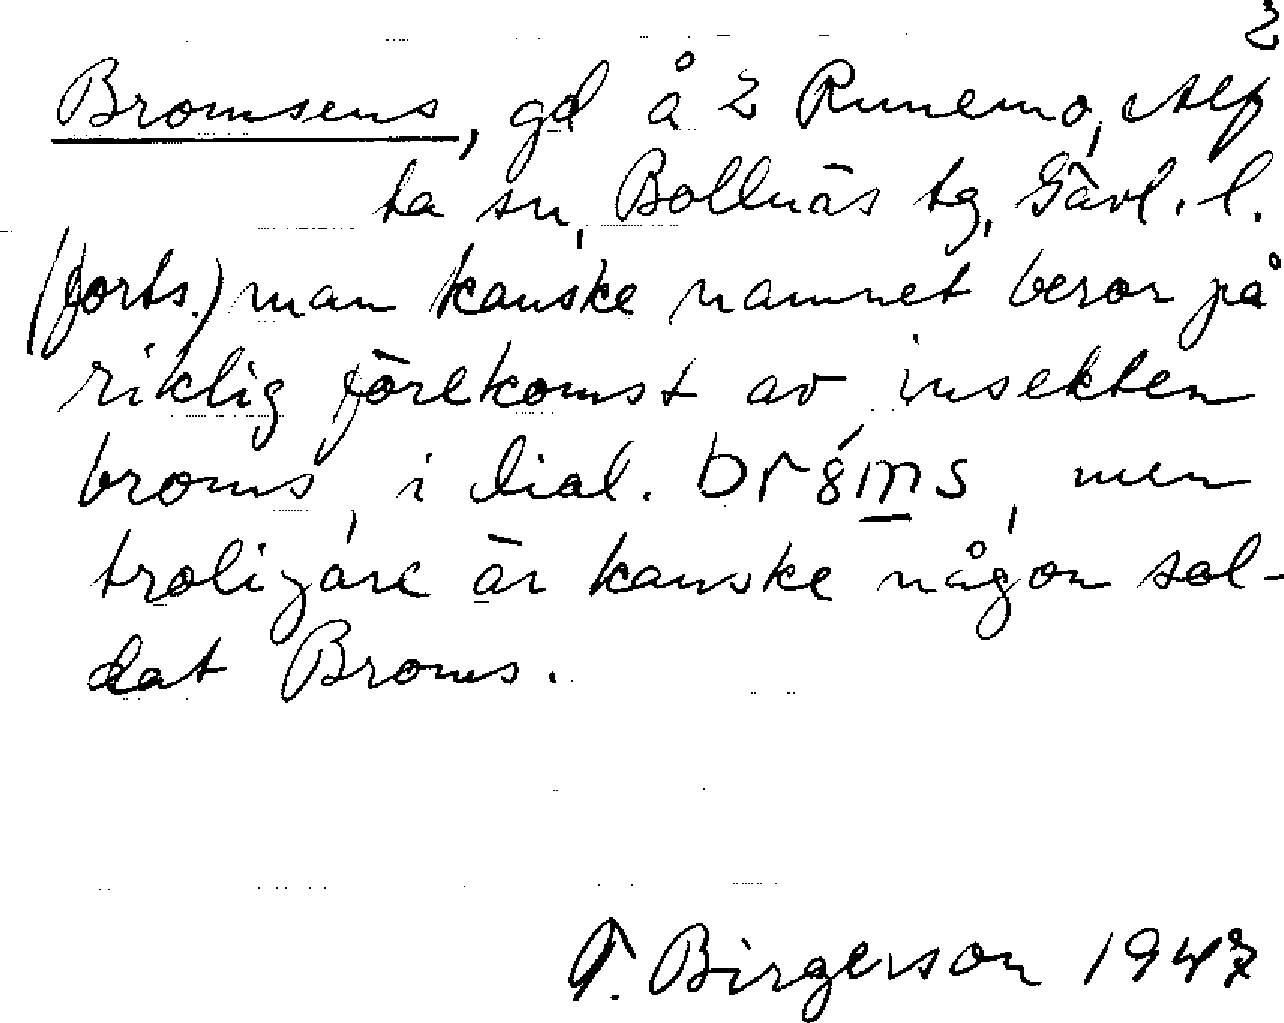 2
Bromsens, gd å 2 Runemo, Alf
ta sn, Bollnäs tg, Gävl. l.
(forts.) man kanske namnet beror på
riklig förekomst av insekten
broms, i dial. br8́m̲s, men
troligare är kanske någon sol-
dat Broms.
T. Birgerson 1947